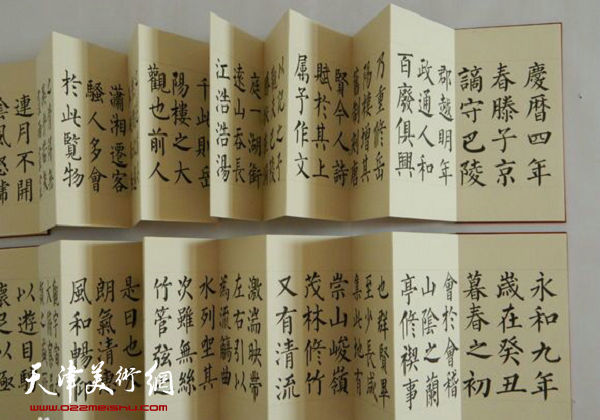 慶暦四年
春滕子京
謫守巴陵
郡越明年
政通人和
百廢俱興
乃重修岳
陽樓增其
舊制刻唐
賢今人詩
賦於其上
属予作文
以記之予
庭一湖銜
遠山吞長
江浩浩湯
此則岳
陽樓之大
觀也前人
瀟湘遷客
騷人多會
於此覽物
連月不開
陰風怒嘯
永和九年
歲在癸丑
暮春之初
會於會稽
山陰之蘭
亭修禊事
也群賢畢
至少長咸
集此地有
崇山峻嶺
茂林修竹
又有清流
激湍映帶
左右引以
為流觴曲
水列坐其
次雖無絲
竹管弦之
是日也
朗氣清
風和暢
以遊目
懷足以極
天津美術網
www.022meishu.com